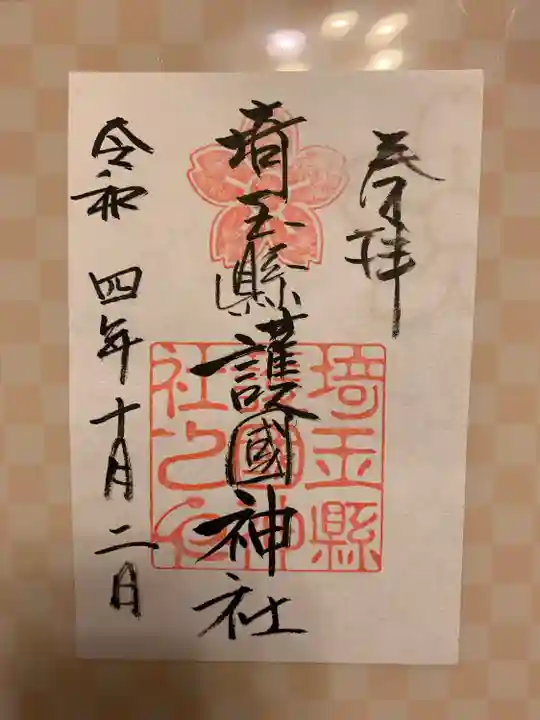 奉拝
埼玉縣護國神社
埼玉縣
護國神
社之印
令和四年十月二日